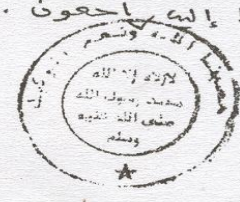 إليه راجعون .
حسبنا الله ونعم الوكيل
لا إله إلا الله
محمد رسول الله
صلى الله عليه
وسلم